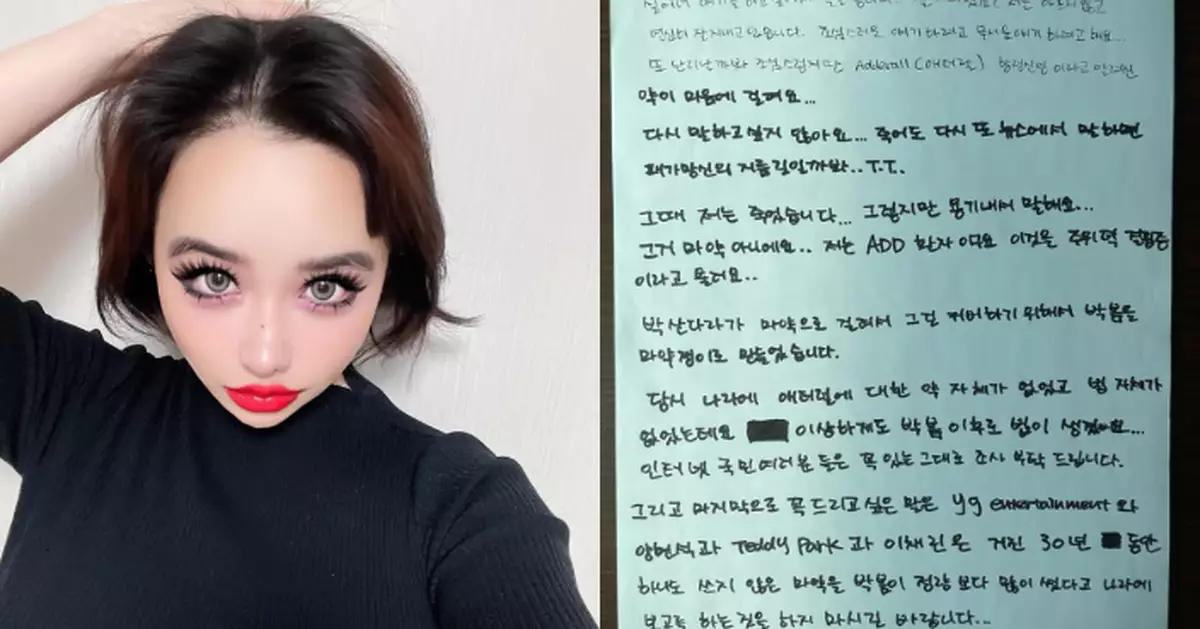 연심히 잘지내고 있습니다. 조심스러운 얘기 하려고
또 난리날까봐 조심스럽지만 Adderall (애더럴)
약이 마음에 걸려요...
다시 말하고 싶지 않아요... 죽어도 다시 또 뉴스에서 말하면
패가망신의 지름길일까봐..T.T.
그때 저는 죽었습니다... 그렇지만 용기내서 말해요...
그거 마약 아니에요.. 저는 ADD 환자 이구요 이것을 주위력 결핍증
이라고 불러요..
박산다라가 마약으로 걸려서 그걸 커버하기 위해서 박봄을
마약쟁이로 만들었습니다.
당시 나라에 애더럴에 대한 약 자체가 없었고 법 자체가
없었는데요 이상하게도 박봄 이후로 법이 생겼어요...
인터넷 국민여러분 들은 꼭 있는 그대로 조사 부탁 드립니다.
그리고 마지막으로 꼭 드리고 싶은 말은 yg entertainment 와
양현석과 Teddy Park 과 이채린은 거진 30년 동안
하나도 쓰지 않은 마약을 박봄이 정량 보다 많이 썼다고 나라에
보고를 하는것을 하지 마시길 바랍니다...